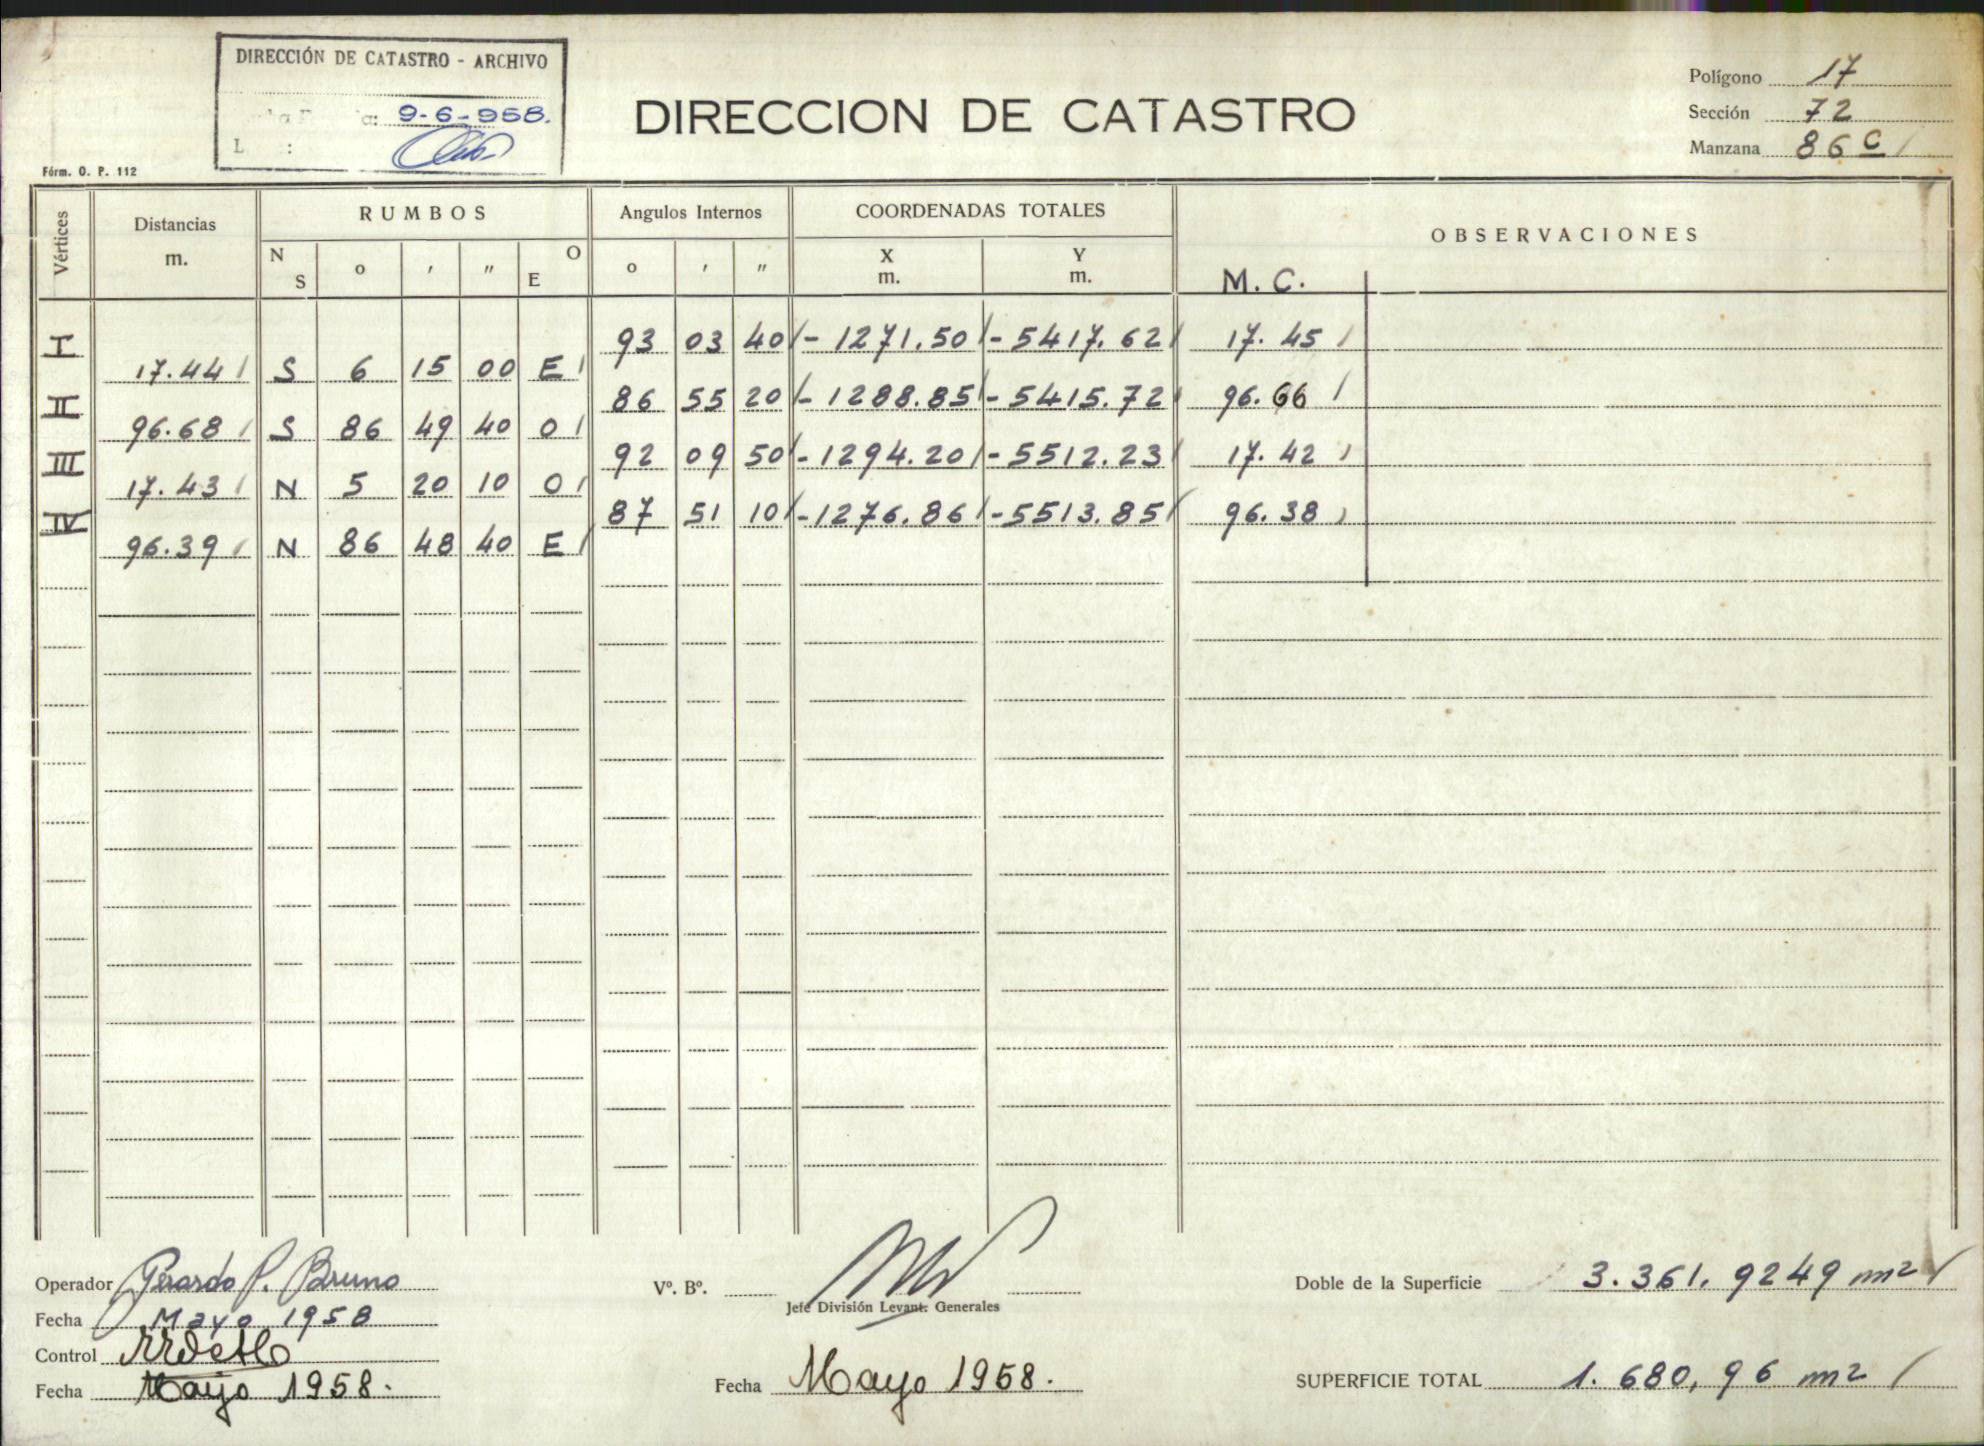 DIRECCIÓN DE CATASTRO - ARCHIVO
9-6-958.
L :
DIRECCION DE CATASTRO
Polígono 17
Sección 72
Manzana 86 c
Fórm. O. P. 112
Vértices
Distancias
m.
RUMBOS
N S o ' " O E
Angulos Internos
o ' "
COORDENADAS TOTALES
X m. Y m.
OBSERVACIONES
M. C.
I 93 03 40 - 1271.50 - 5417.62 17.45
17.44 S 6 15 00 E
II 86 55 20 - 1288.85 - 5415.72 96.66
96.68 S 86 49 40 O
III 92 09 50 - 1294.20 - 5512.23 17.42
17.43 N 5 20 10 O
IV 87 51 10 - 1276.86 - 5513.85 96.38
96.39 N 86 48 40 E
Operador Gerardo P. Bruno
Fecha Mayo 1958
Control
Fecha Mayo 1958.
Vº. Bº.
Jefe División Levant. Generales
Fecha Mayo 1958.
Doble de la Superficie 3.361,9249 m2
SUPERFICIE TOTAL 1.680,96 m2